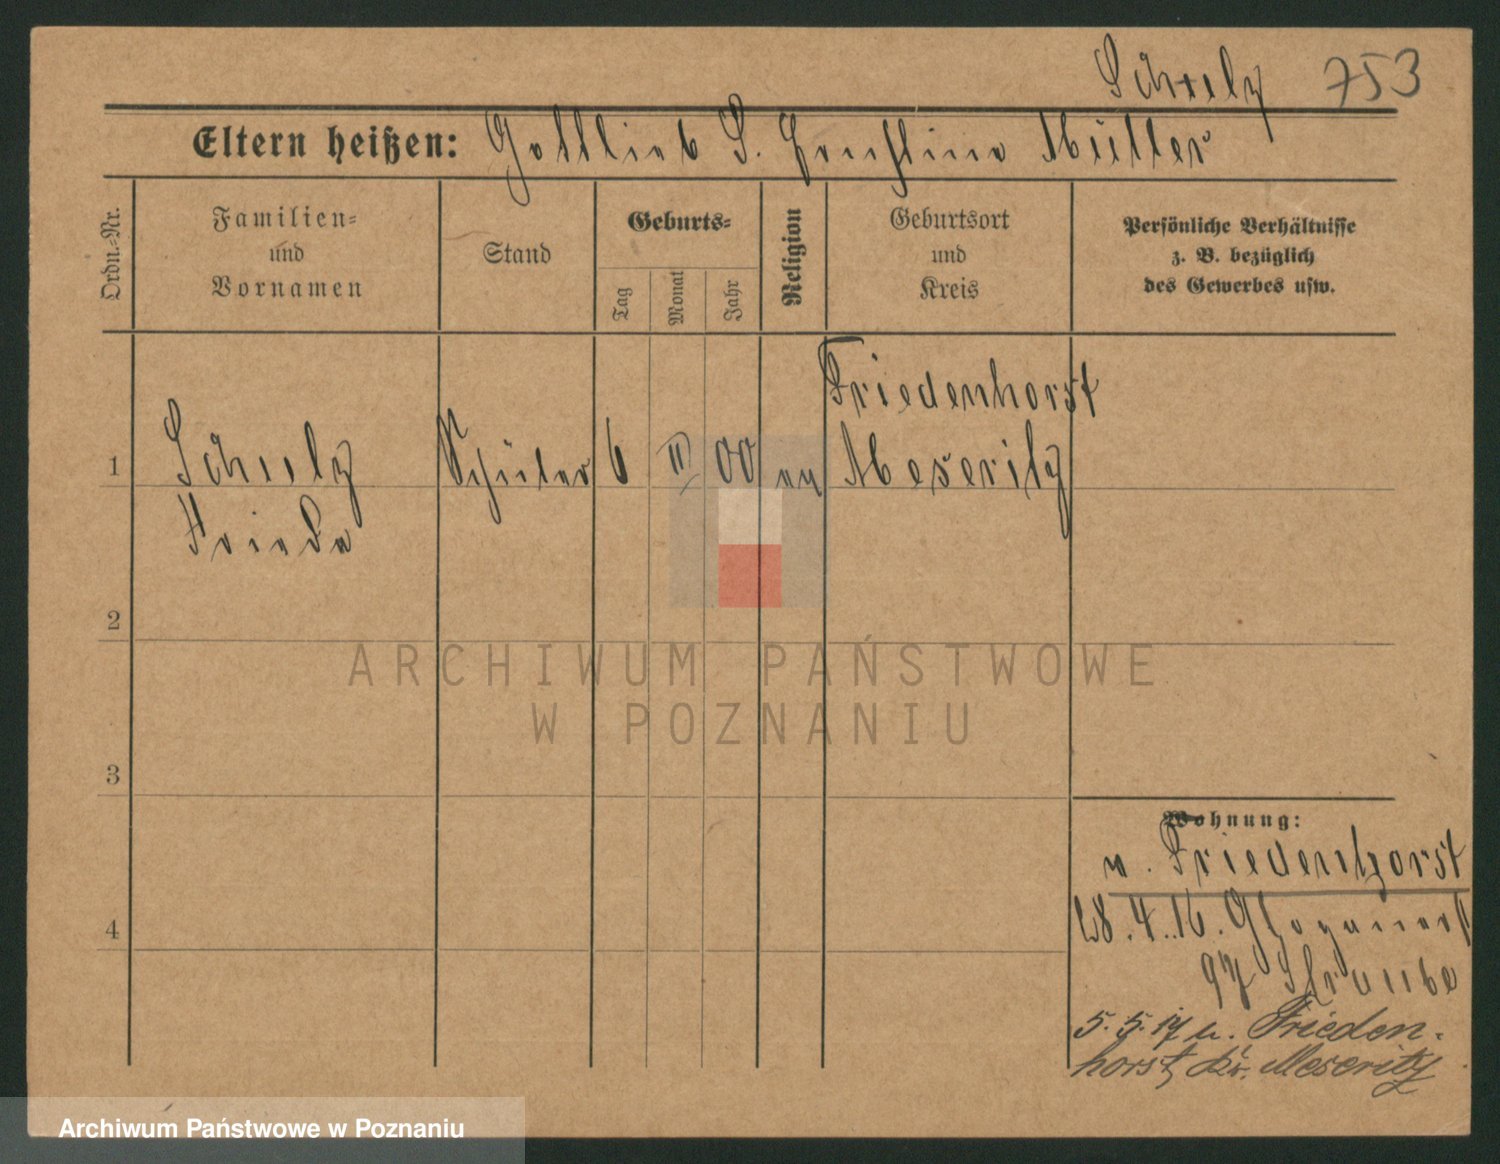 Schulz 753
Eltern heißen: Gottlieb S. Ernstine Müller
Ordn.-Nr.
Familien-
und
Vornamen
Stand
Geburts-
Tag
Monat
Jahr
Religion
Geburtsort
und
Kreis
Persönliche Verhältnisse
z. B. bezüglich
des Gewerbes usw.
Friedenhorst
1 Schulz Schüler 6 II 00 ev Meseritz
Frieda
2
ARCHIWUM PAŃSTWOWE
W POZNANIU
3
Wohnung:
v. Friedenhorst
28.4.16. Glogauerst
97 Straube
5.5.17 n. Frieden-
horst, Kr. Meseritz
4
Archiwum Państwowe w Poznaniu